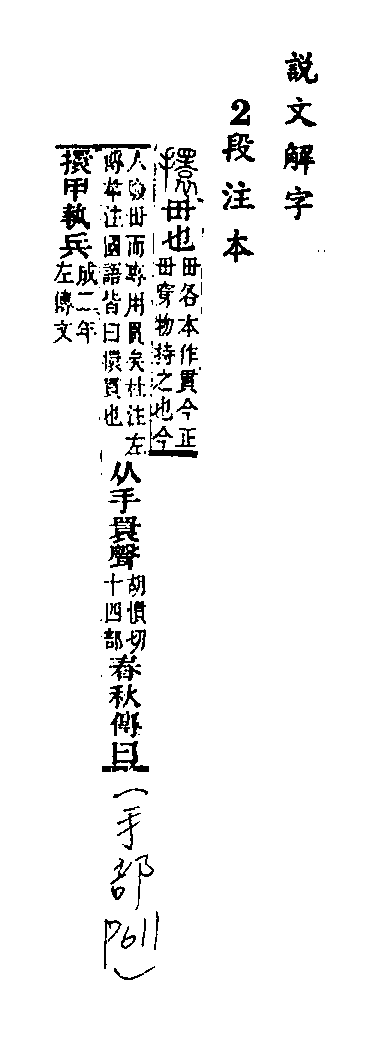 説文解字
2段注本
擐毌也
毌各本作貫今正
毌穿物持之也今
人廢毌而專用貫矣杜注左
傳韋注國語皆曰擐貫也
从手睘聲
胡慣切
十四部
春秋傳曰
擐甲執兵
成二年
左傳文
(手部P611)